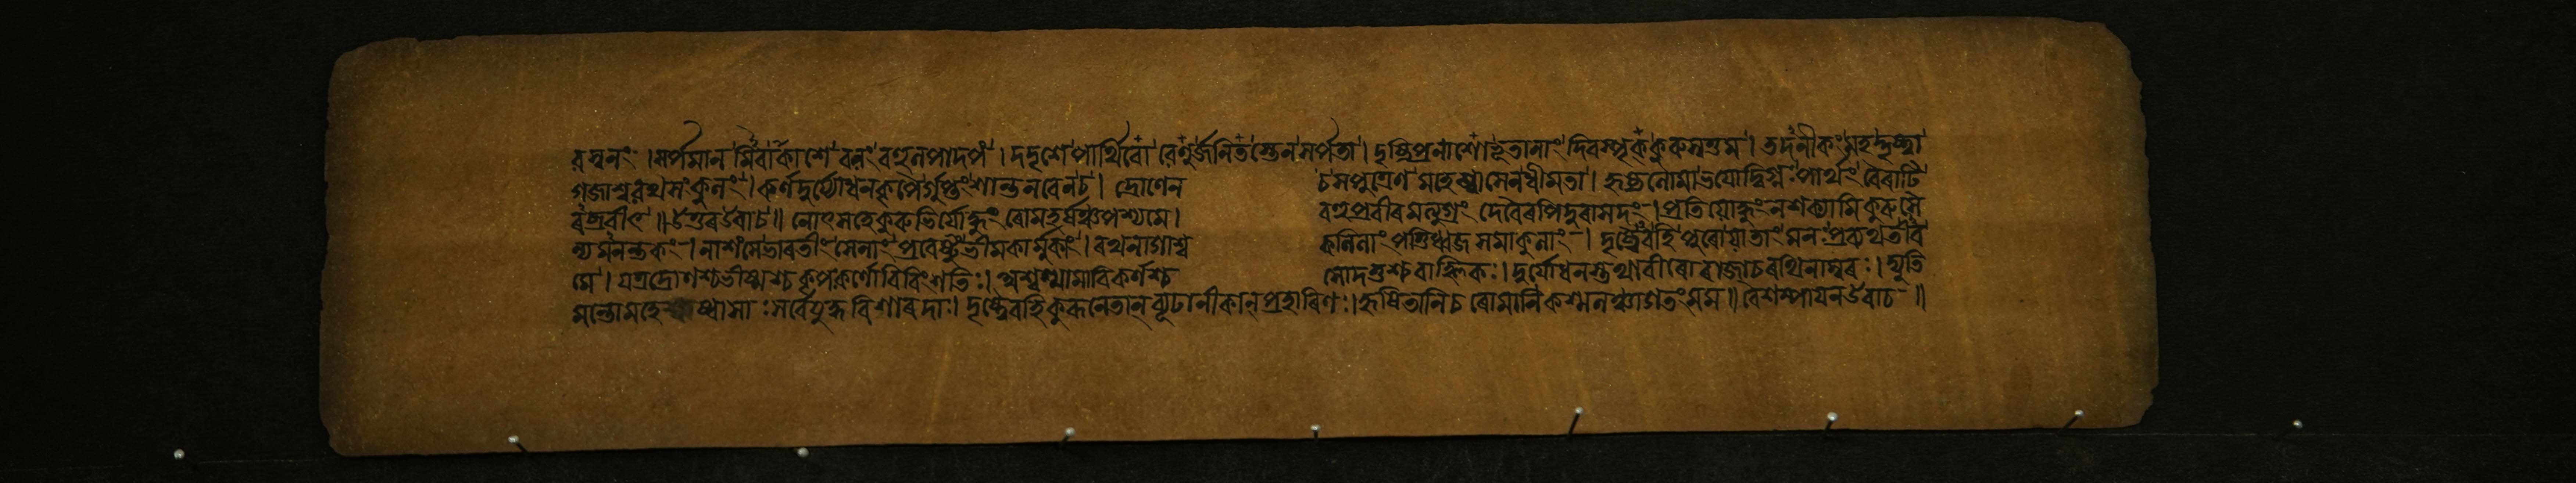 ৰস্বনং । সৰ্পমান মিবাকাশে বনং বহুলপাদপং । দদৃশে পাৰ্থিবো ৰেণুৰ্জনিতস্তেন সৰ্পতা । দৃষ্টিপ্ৰনাশো ভূতানাং দিবস্পৃক্ কুৰুসত্তম । তদনীকং মহদ্দৃষ্ট্বা
গজাশ্বৰথসংকুলং । কৰ্ণদুৰ্য্যোধনকৃপৈৰ্গুপ্তং শান্তনবেনচ । দ্ৰোণেন চ সপুত্ৰেণ মহেষ্বাসেন ধীমতা । হৃষ্টৰোমা ভয়োদ্বিগ্নঃ পাৰ্থং বৈৰাটি
ৰব্ৰবীৎ ॥ উত্তৰ উবাচ ॥ নোৎসহে কুৰুভিৰ্যোদ্ধুং ৰোমহৰ্ষঞ্চ পশ্যমে । বহুপ্ৰবীৰ মত্যুগ্ৰং দেবৈৰপি দুৰাসদং । প্ৰতিয়োদ্ধুং ন শক্যামি কুৰুসৈ
ন্য মনন্তকং । নাশংসে ভাৰতীং সেনাং প্ৰবেষ্টুং ভীমকাৰ্মুকাং । ৰথনাগাশ্ব কলিলাং পত্তিধ্বজ সমাকুলাং । দৃষ্ট্বৈবহি পুৰোয়াতাং মনঃ প্ৰব্যথতীব
মে । যত্ৰ দ্ৰোণশ্চ ভীষ্মশ্চ কৃপকৰ্ণো বিবিংশতিঃ । অশ্বত্থামা বিকৰ্ণশ্চ সোমদত্তশ্চ বাহ্লিকঃ । দুৰ্যোধনস্তথা বীৰো ৰাজাচ ৰথিনাম্বৰঃ । দ্যুতি
মন্তো মহেষ্বাসাঃ সৰ্বে যুদ্ধ বিশাৰদাঃ । দৃষ্ট্বৈবহি কুৰূনেতান্ ব্যূঢানীকান্ প্ৰহাৰিণঃ । হৃষিতানিচ ৰোমানি কশ্মলঞ্চাগতং মম ॥ বৈশম্পায়ন উবাচ ॥